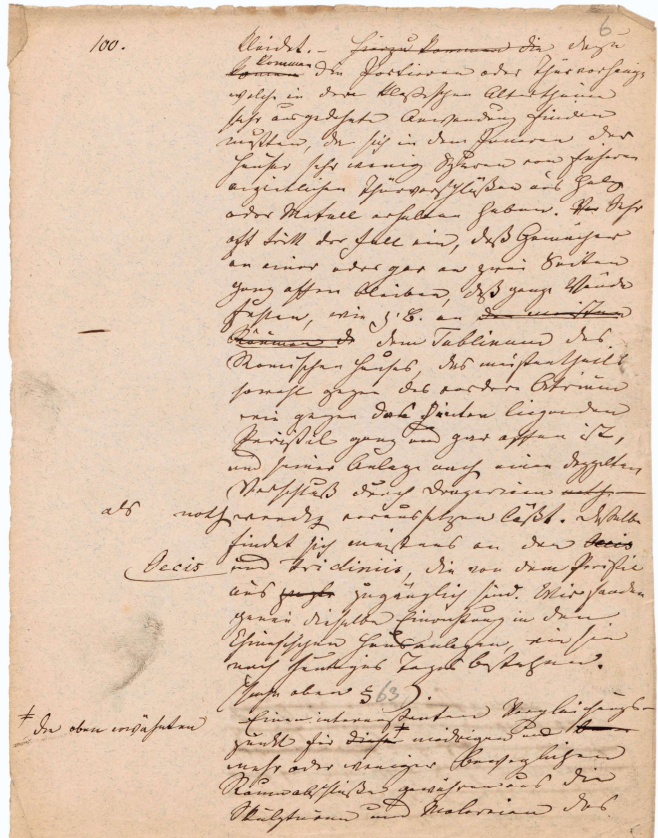 6
100.
kleidet. – Hierzu kommen die dazu
kommen die Portieren oder Thürvorhänge
welche in dem klaßischen Alterthume
sehr ausgedehnte Anwendung finden
mußten, da sich in dem Inneren der
Häuser sehr wenig Spuren von festeren
eigentlichen Thürverschlüßen aus Holz
oder Metall erhalten haben. Sehr
oft tritt der Fall ein, daß Gemächer
an einer oder gar an zwei Seiten
ganz offen bleiben, daß ganze Wände
fehlen, wie z. B. an den meisten
Räumen de dem Tablinum des
Römischen Hauses, das meistentheils
sowohl gegen das vordere Atrium
wie gegen das hinten liegenden
Peristyl ganz und gar offen ist,
und seiner Anlage nach einen doppelten
Verschluß durch Draperieen noth-
als nothwendig voraussetzen läßt. Dasselbe
findet sich meistens an den Oecis
Oecis und Tricliniis, die von dem Peristyl
aus zugänglich sind. Wir fanden
genau dieselbe Einrichtung in den
Chinesischen Hausanlagen, wie sie
noch heutiges Tages bestehen.
(siehe oben § 63).
Einen interessanten Vergleichungs-
‡ die oben erwähnten
punkt für diese ‡ niedrigen und
mehr oder weniger beweglichen
Raumabschlüße gewähren uns die
Skulpturen und Malereien des